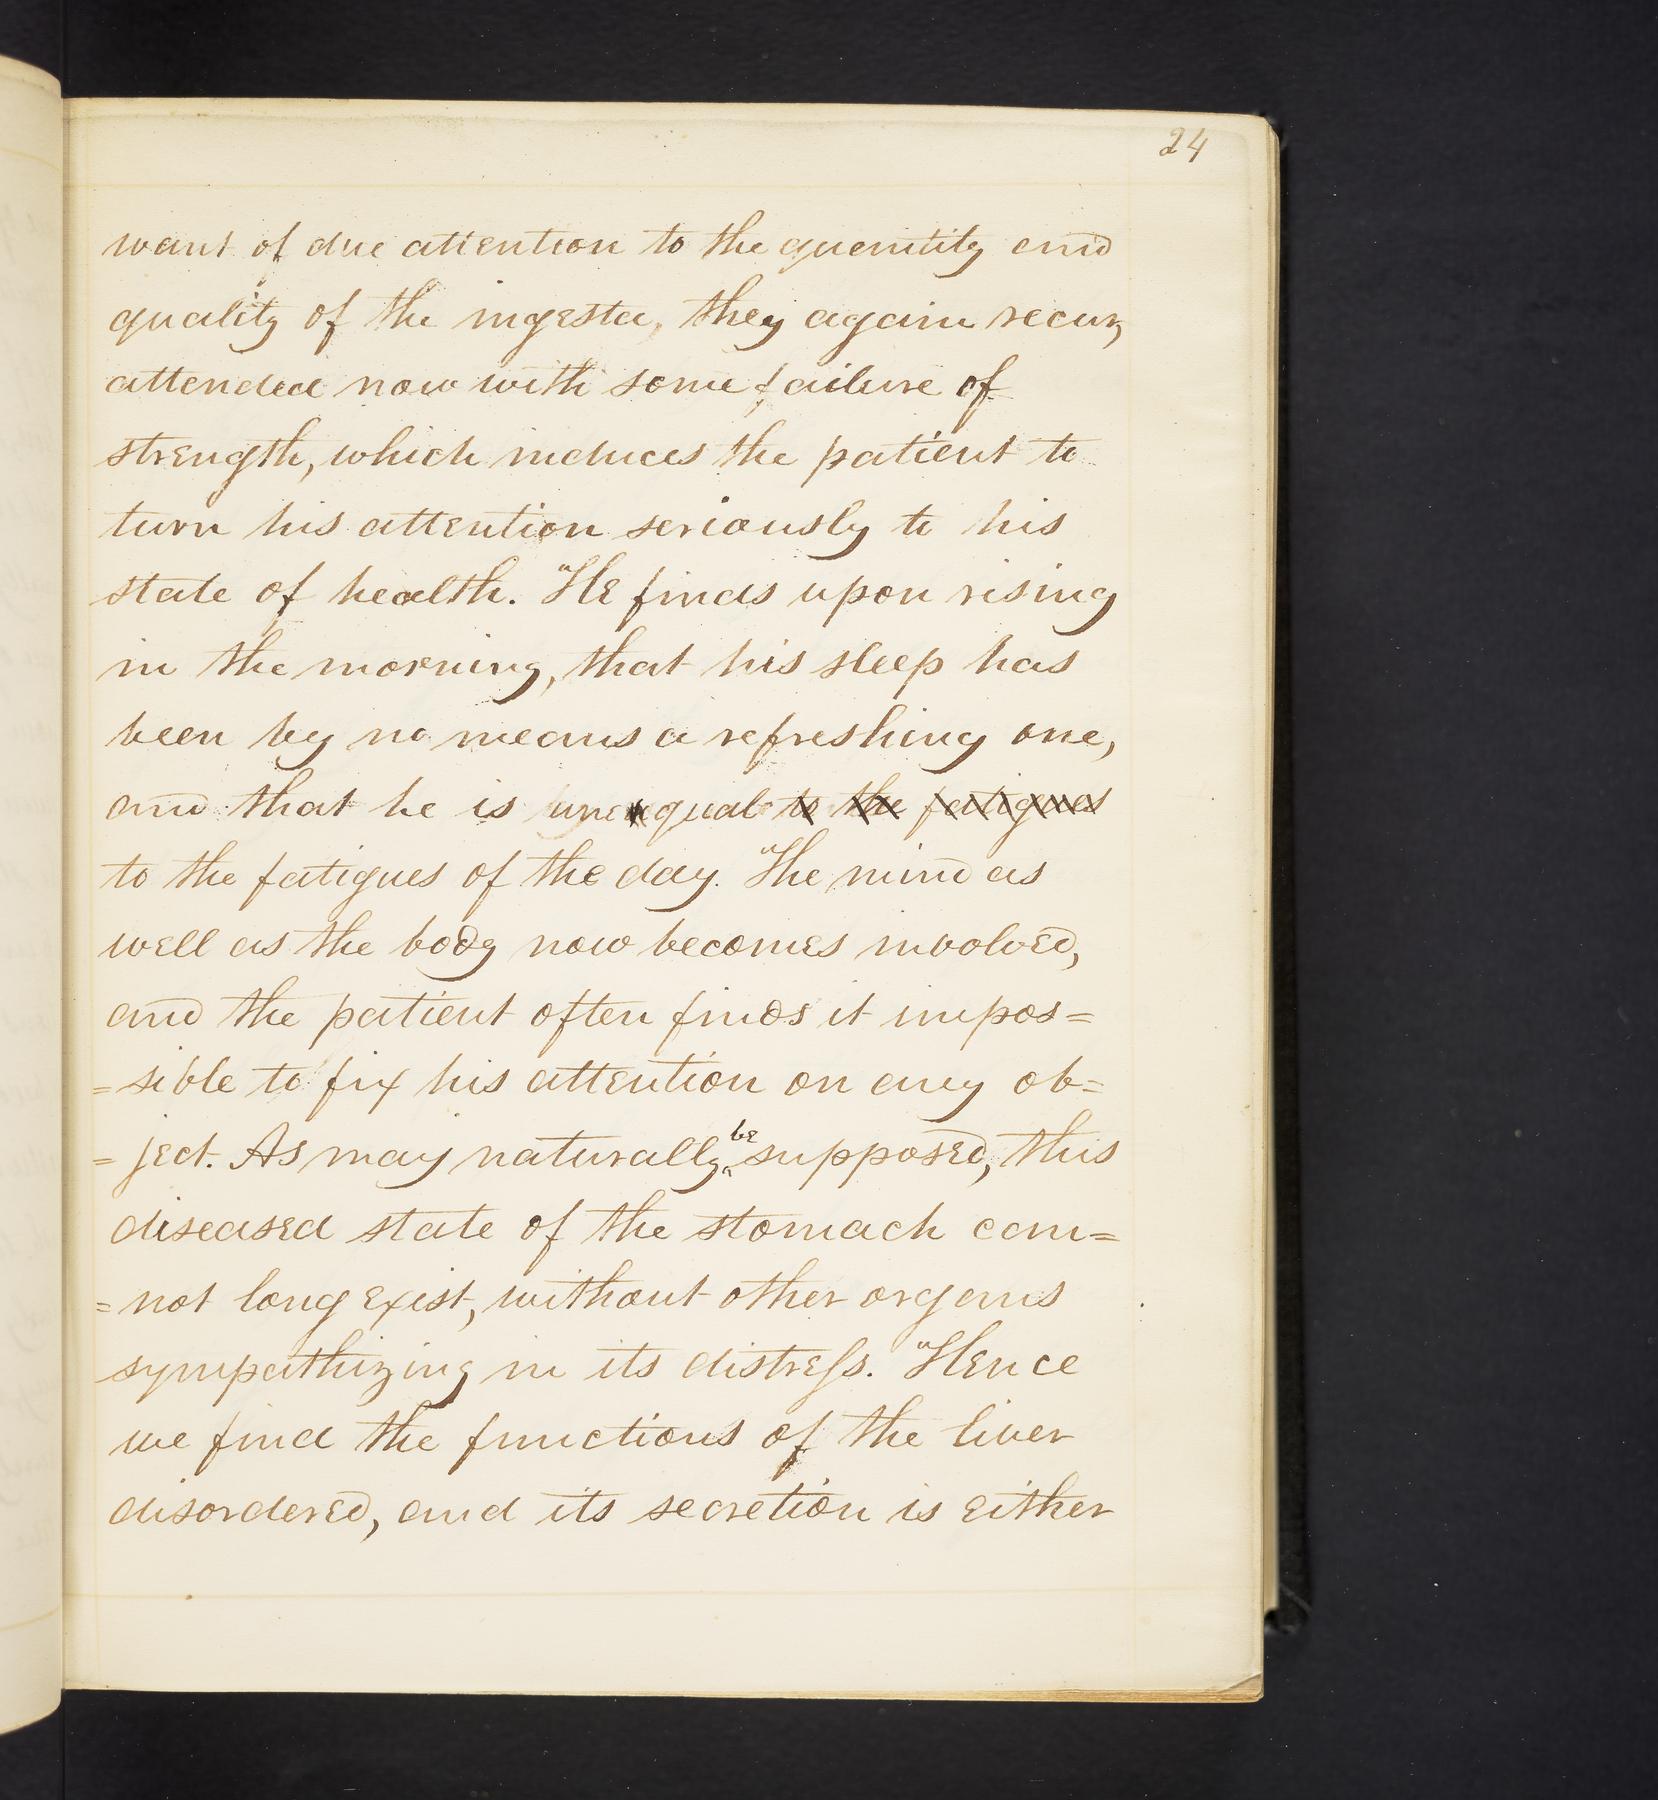 24
want of due attention to the quantity and
quality of the ingesta, they again recur,
attended now with some failure of
strength, which induces the patient to
turn his attention seriously to his
state of health. He finds upon rising
in the morning, that his sleep has
been by no means a refreshing one,
and that he is unequal to the fatigues
to the fatigues of the day. The mind as
well as the body now becomes involved,
and the patient often finds it impos=
=sible to fix his attention on any ob=
=ject. As may naturally be supposed, this
diseased state of the stomach can=
=not long exist, without other organs
sympathizing in its distress. Hence
we find the functions of the liver
disordered, and its secretion is either